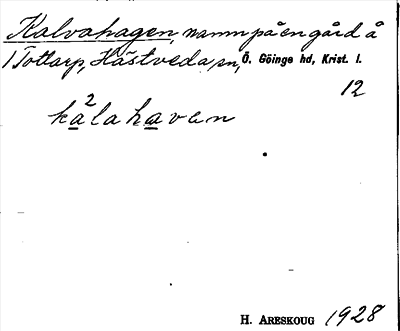 Kalvahagen, namn på en gård å
1 Tottarp, Hästveda, sn, Ö. Göinge hd, Krist. l.
12
ka²lahaven
H. ARESKOUG 1928